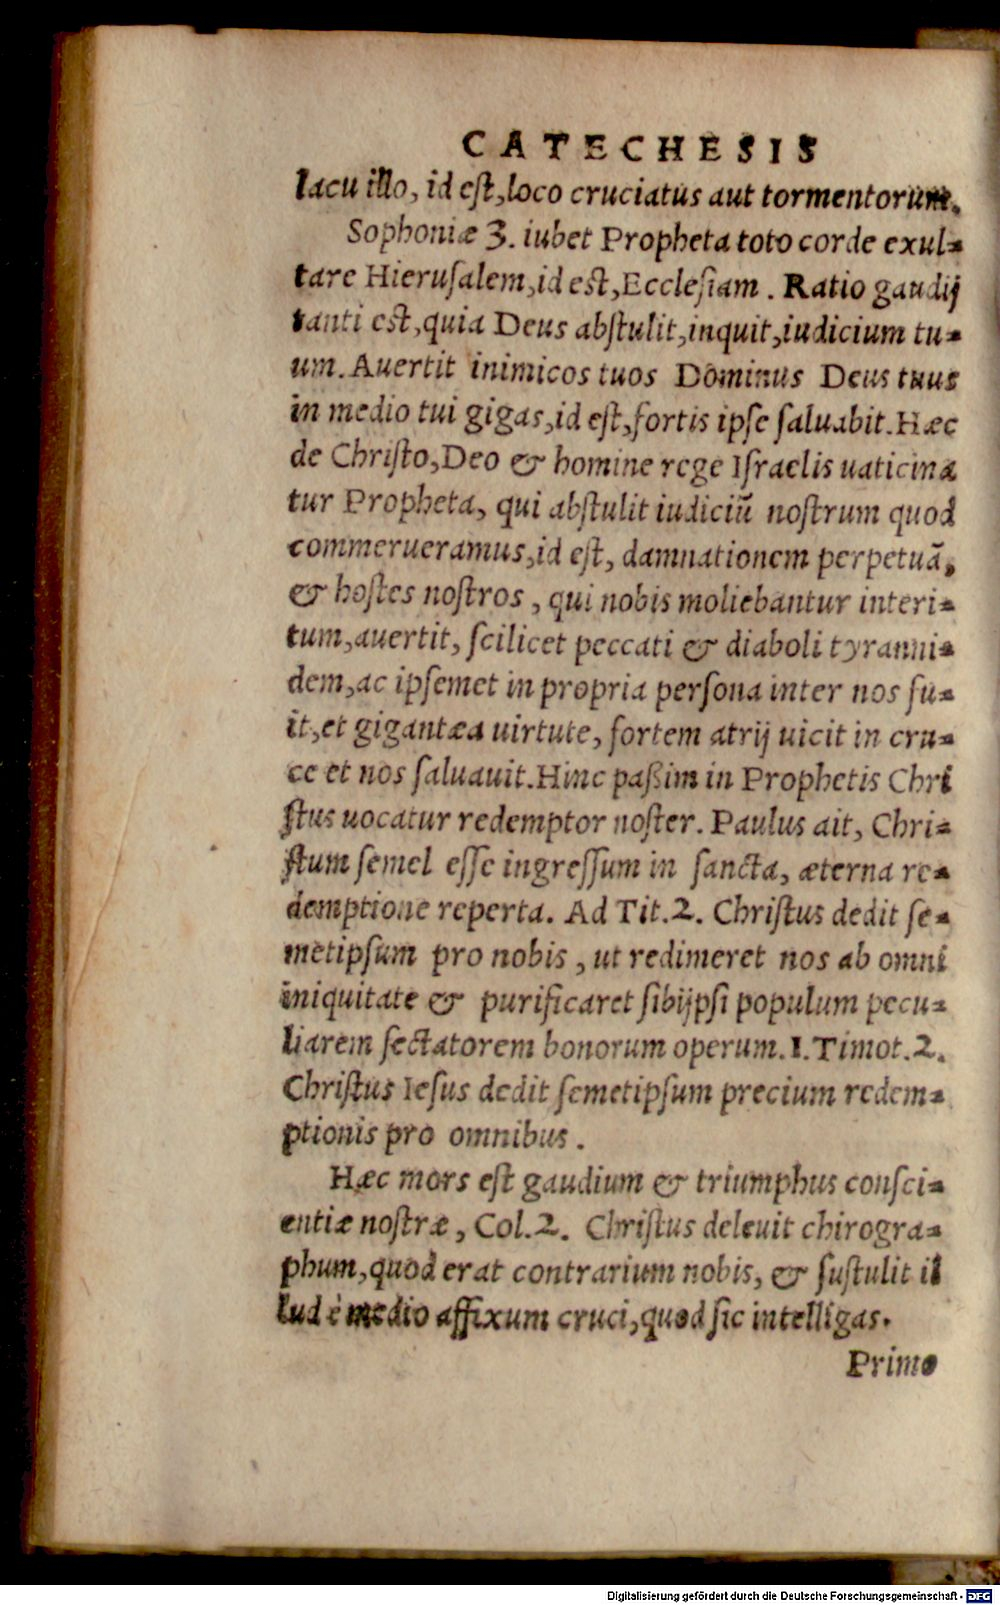 CATECHESIS
lacu illo, id eſt, loco cruciatus aut tormentorum.
Sophoniæ 3. iubet Propheta toto corde exul-
tare Hieruſalem, id est, Eccleſiam. Ratio gaudij
tanti est, quia Deus abſtulit, inquit, iudicium tu-
um. Auertit inimicos tuos Dominus Deus tuus
in medio tui gigas, id eſt, fortis ipſe ſaluabit. Hæc
de Chriſto, Deo & homine rege Iſraelis uaticina
tur Propheta, qui abſtulit iudiciũ noſtrum quod
commerueramus, id eſt, damnationem perpetuã,
& hoſtes noſtros, qui nobis moliebantur interi-
tum, auertit, ſcilicet peccati & diaboli tyranni-
dem, ac ipſemet in propria perſona inter nos fu-
it, et gigantæa uirtute, fortem atrij uicit in cru-
ce et nos ſaluauit. Hinc paßim in Prophetis Chri
ſtus uocatur redemptor noſter. Paulus ait, Chri-
ſtum ſemel eſſe ingreſſum in ſancta, æterna re-
demptione reperta. Ad Tit. 2. Chriſtus dedit ſe-
metipſum pro nobis, ut redimeret nos ab omni
iniquitate & purificaret ſibijpſi populum pecu-
liarem ſectatorem bonorum operum. I. Timot. 2.
Chriſtus Ieſus dedit ſemetipſum precium redem-
ptionis pro omnibus.
Hæc mors eſt gaudium & triumphus conſci-
entiæ noſtræ, Col. 2. Chriſtus deleuit chirogra-
phum, quod erat contrarium nobis, & ſuſtulit il
lud è medio affixum cruci, quod ſic intelligas.
Primo
Digitalisierung gefördert durch die Deutsche Forschungsgemeinschaft - DFG